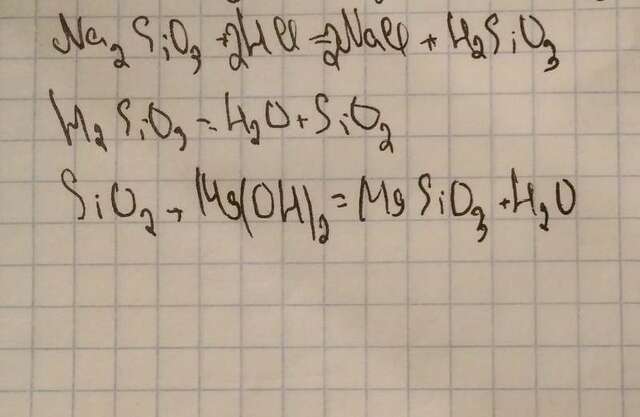 Na₂SiO₃ + 2HCl = 2NaCl + H₂SiO₃
H₂SiO₃ = H₂O + SiO₂
SiO₂ + Mg(OH)₂ = MgSiO₃ + H₂O